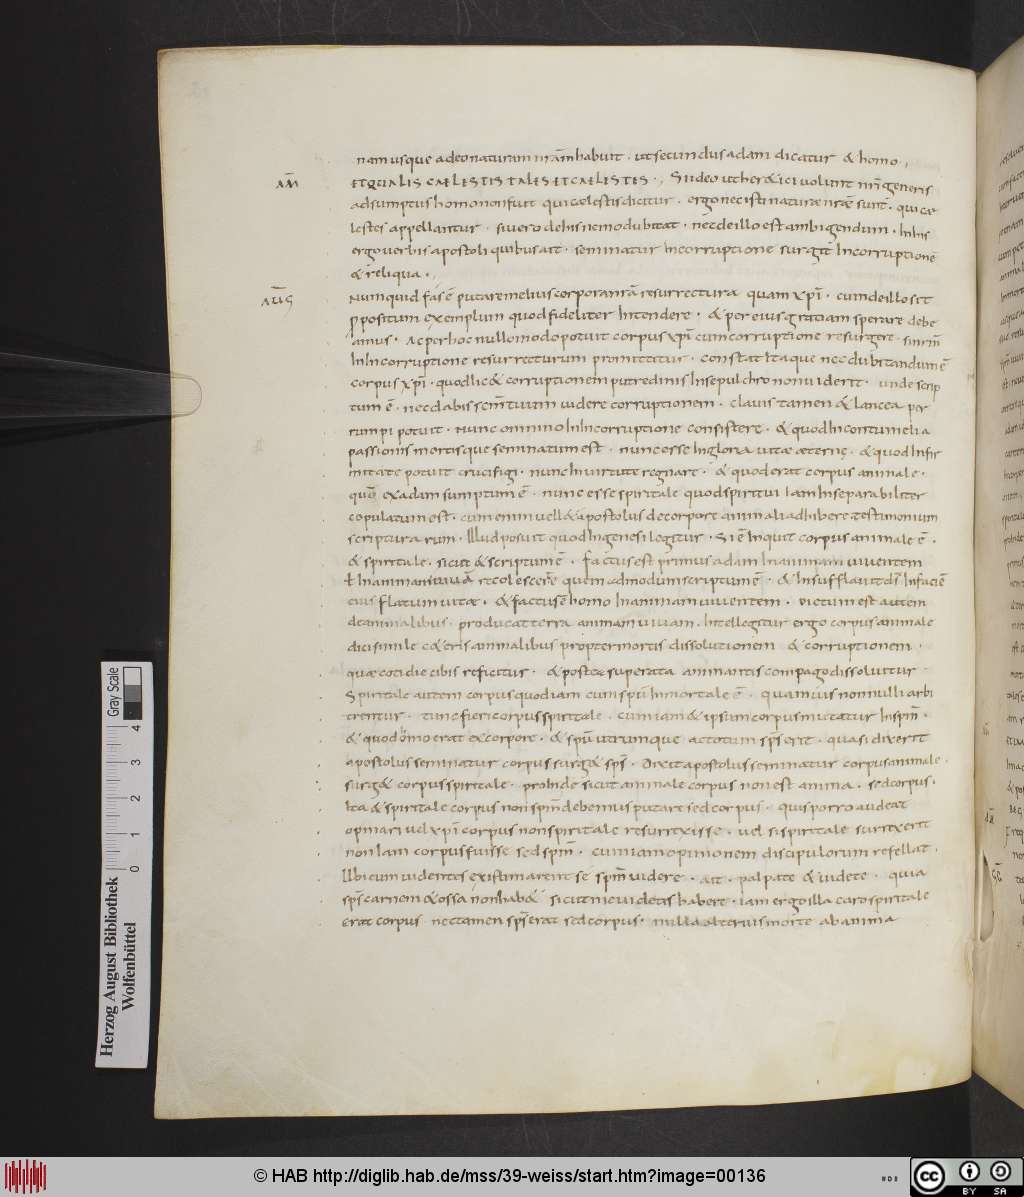 nam usque adeo naturam nr̄am habuit · ut secundus adam dicatur & homo ·,
AM̄
ET QUALIS CAELESTIS TALES ET CAELESTES ·, Si ideo ut heretici volunt nr̄i generis
adsumptus homo non fuit qui caelestis dicitur · ergo nec isti naturae nr̄ae sunt · qui cae
lestes appellantur · si vero de his nemo dubitat · nec de illo est ambigendum · In his
ergo verbis apostoli quibus ait · seminatur In corruptione surg& In corruptione
& reliqua ·,
AUḠ
Numquid fas ē putare melius corpora nr̄a resurrectura quam xp̄i · cum de illo sit
p̱positum exemplum quod fideliter Intendere · & per eius gratiam sperare debe
amus · Ac per hoc nullo modo potuit corpus xp̄i cum corruptione resurgere · si nr̄m
In Incorruptione resurrecturum promittitur · constat Itaque nec dubitandum ē
corpus xp̄i · quod lic& corruptionem putredinis In sepulchro non viderit · unde scrip
tum ē · nec dabis sc̄m tuum videre corruptionem · clavis tamen & lancea per
rumpi potuit · Nunc omnino In Incorruptione consistere · & quod In contumelia
passionis mortisque seminatum est · nunc esse In gloria vitae aeternę · & quod Infir
mitate potuit crucifigi · nunc In virtute regnare · & quod erat corpus animale ·
quō ex adam sumptum ē · nunc esse spiritale quod spiritui Iam Inseparabiliter
copulatum est · cum enim vell& apostolus de corpore animali adhibere testimonium
scripturarum · Illud posuit quod In genesi legitur · Si ē Inquit corpus animale ē ·
& spiritale · sicut & scriptum ē · factus est primus adam In animam viventem
In animam vivā recolescere quem admodum scriptum ē · & Insufflavit d̄s In faciē
eius flatum vitae · & factus ē homo In animam viventem · Dictum est autem
de animalibus · producat terra animam vivam · Intellegitur ergo corpus animale
dici simile caeteris animalibus propter mortis dissolutionem & corruptionem ·
quae cotidie cibis reficitur · & postea superata animantis compago dissolvitur
Spiritale autem corpus quod iam cum spū Inmortale ē · quamvis nonnulli arbi
trentur · tunc fieri corpus spiritale · cum iam & ipsum corpus mutatur In sp̄m ·
& quod homo erat ex corpore · & spū utrumque ac totum sp̄s erit · quasi dixerit
apostolus seminatur corpus surg& sp̄s · Dixit apostolus seminatur corpus animale ·
surg& corpus spiritale · proinde sicut animale corpus non est anima · sed corpus ·
Ita & spiritale corpus non sp̄m debemus putare sed corpus · quis porro audeat
opinari vel xp̄i corpus non spiritale resurrexisse · vel si spiritale surrexerit
non Iam corpus fuisse sed sp̄m · cum iam opinionem discipulorum refellat ·
Ubi cum videntes existimarent se sp̄m videre · ait · palpate & videte · quia
sp̄s carnem & ossa non hab& sicut me videtis habere · iam ergo illa caro spiritale
erat corpus nec tamen sp̄s erat sed corpus · nulla ulterius morte ab anima
Herzog August Bibliothek
Wolfenbüttel
0 1 2 3 4
Gray Scale
© HAB http://diglib.hab.de/mss/39-weiss/start.htm?image=00136
cc BY SA